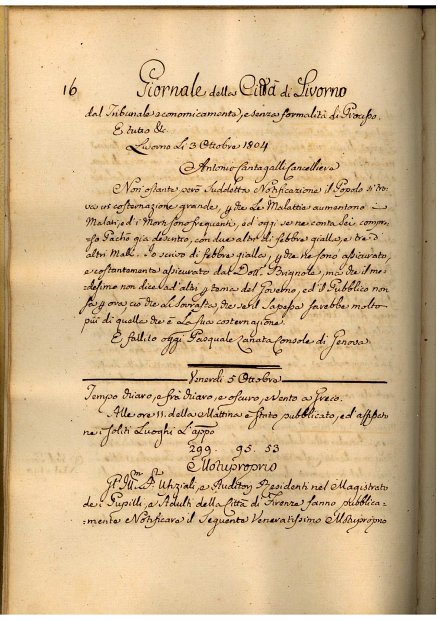 16
Giornale della Città di Livorno
dal Tribunale economicamente, e senza formalità di Processo.
E tutto &c.
Livorno Li 3 Ottobre 1804
Antonio Cantagalli Cancelliere
Non ostante però Suddetta Notificazione il Popolo si tro-
va in costernazione grande, che Le Malattie aumentono i
Malati, ed i Morti sono frequenti, ed oggi se ne conta Sei compre-
so Pachò già descritto, con due altri di febbre gialla, e tre d'
altri Mali. Io scrivo di febbre gialla, che ne sono assicurato,
e costantemente assicurato dal Dott. Brignole, ma che il me-
desimo non dice ad altri per tema del Governo, ed il Pubblico non
fa per ora ciò che Le Sovrasta, che se il Sapessa sarebbe molto
più di quella che è La sua costernazione.
E fallito oggi Pasquale Zanata Console di Genova
Venerdi 5 Ottobre
Tempo chiaro, e frà chiaro, e oscuro, e Vento a Greco.
Alle ore 11. della Mattina è stato pubblicato, ed affisso
ne i soliti Luoghi L'appo
299. 95. 53
Motuproprio
Gl' Ill.mi SS.ri Ufiziali, e Auditori Residenti nel Magistrato
de i Pupilli, e Adulti della Città di Firenze fanno pubblica-
mente Notificare il Seguente Veneratissimo Motuproprio